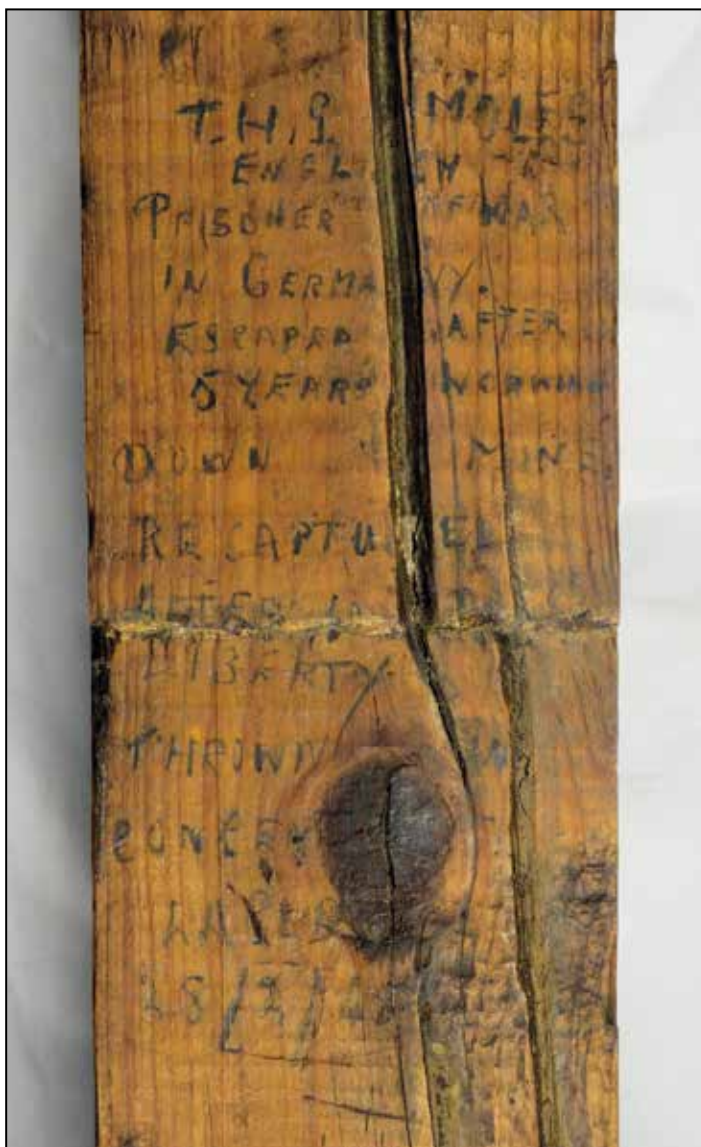 T.H.J. MOLES
ENGLISH
PRISONER OF WAR
IN GERMANY.
ESCAPED AFTER
5 YEARS WORKING
DOWN MINE.
RECAPTURED
AFTER
LIBERTY.
THROWN IN
LAGER